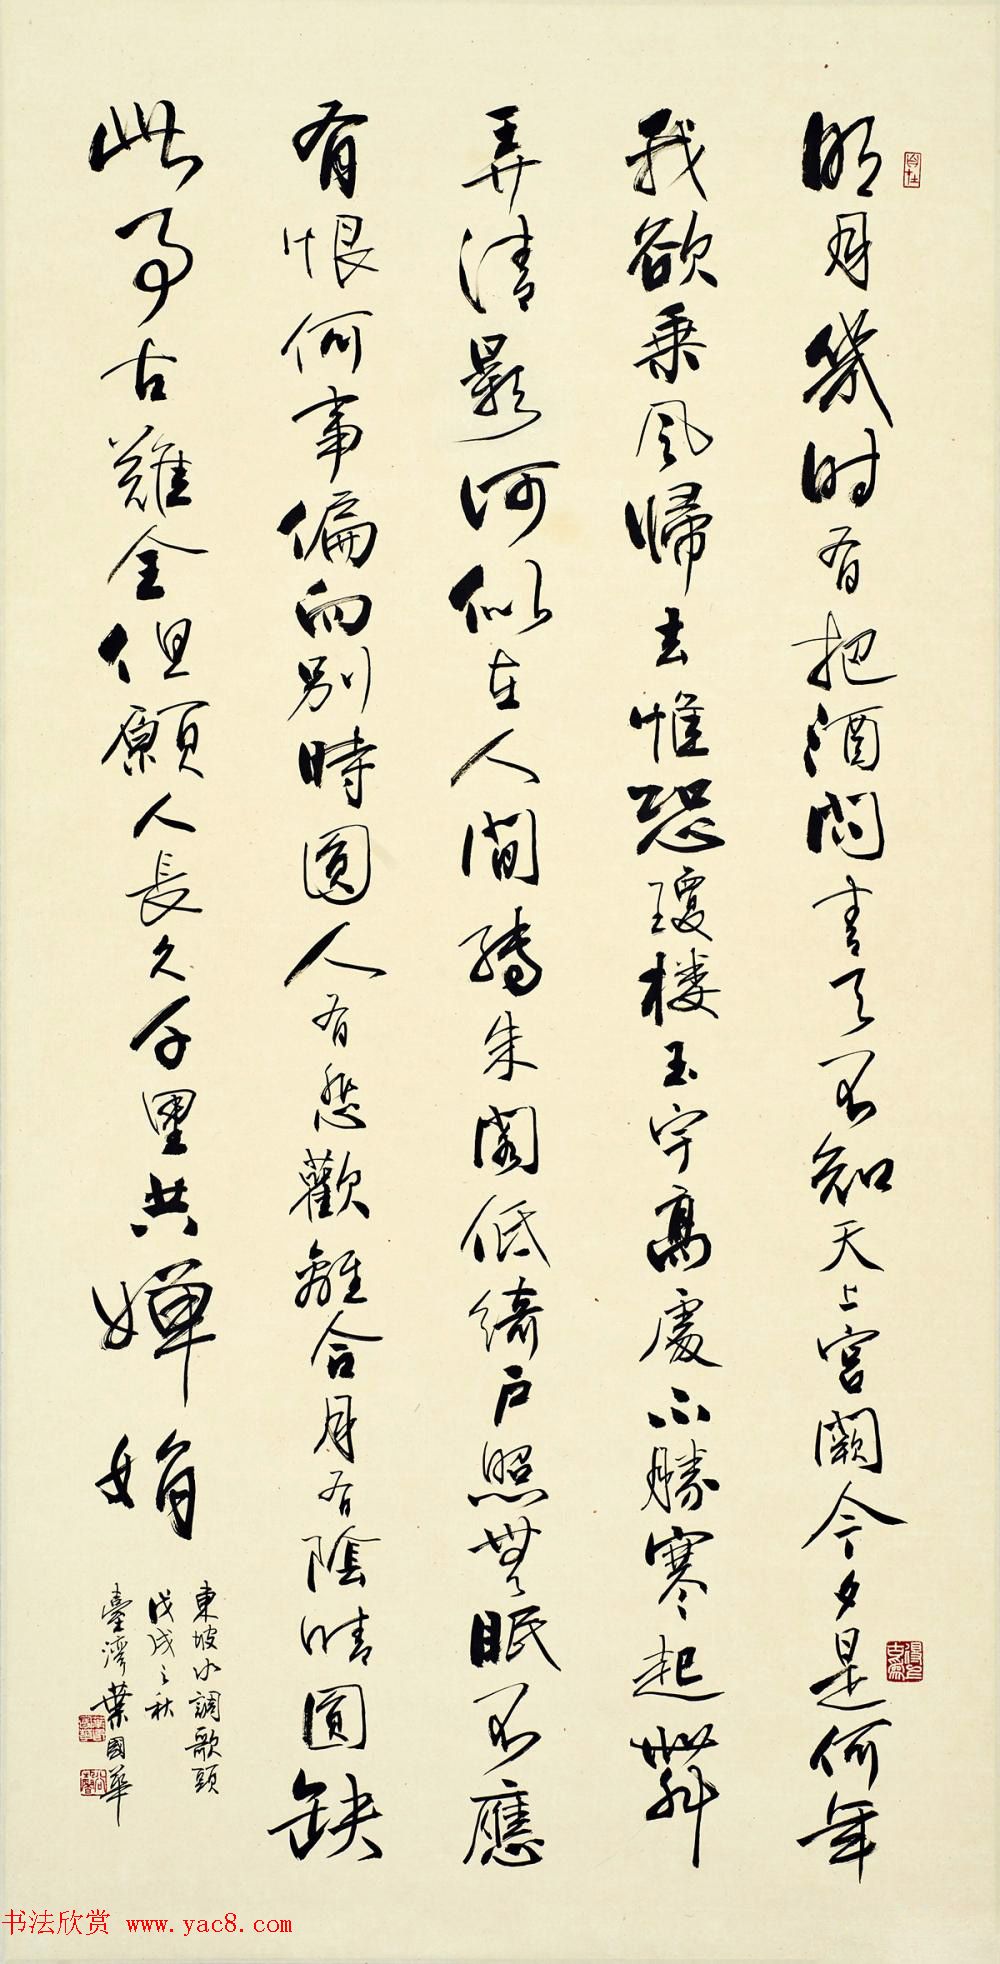 明月幾时有把酒問青天不知天上宮闕今夕是何年
我欲乘风歸去惟恐瓊楼玉宇高處不勝寒起舞
弄清影何似在人間轉朱閣低綺户照無眠不應
有恨何事偏向別時圓人有悲歡離合月有陰晴圓缺
此事古難全但願人長久千里共嬋娟
東坡水調歌頭
戊戌之秋
臺灣葉國華
书法欣赏 www.yac8.com